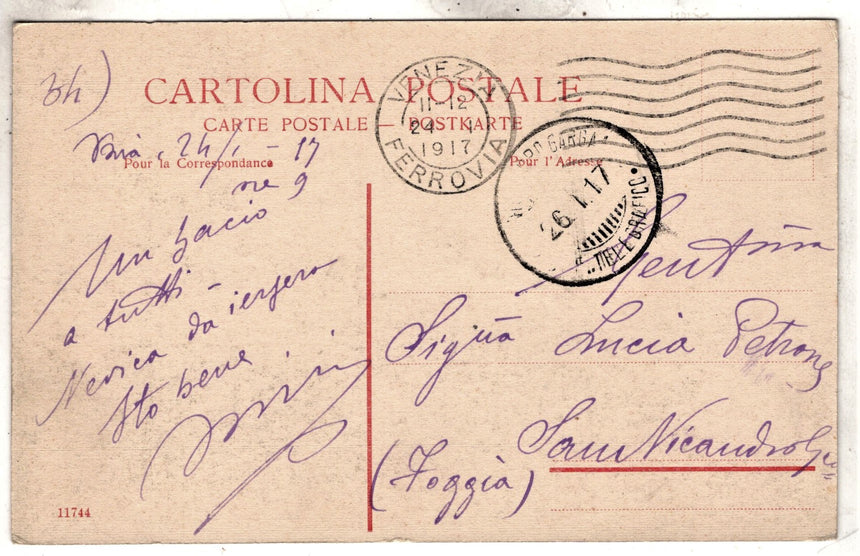 34)
CARTOLINA POSTALE
CARTE POSTALE — POSTKARTE
VENEZIA
11-12
24 1
1917
FERROVIA
24/1 - 17
Pour la Correspondance
Pour l'Adresse
ore 9
GARGA
26.1.17
TELEGRAFICO
Un bacio
a tutti -
Nevica da iersera
Sto bene
Gent.ma
Sig.na Lucia Petrone
San Nicandro
(Foggia)
11744